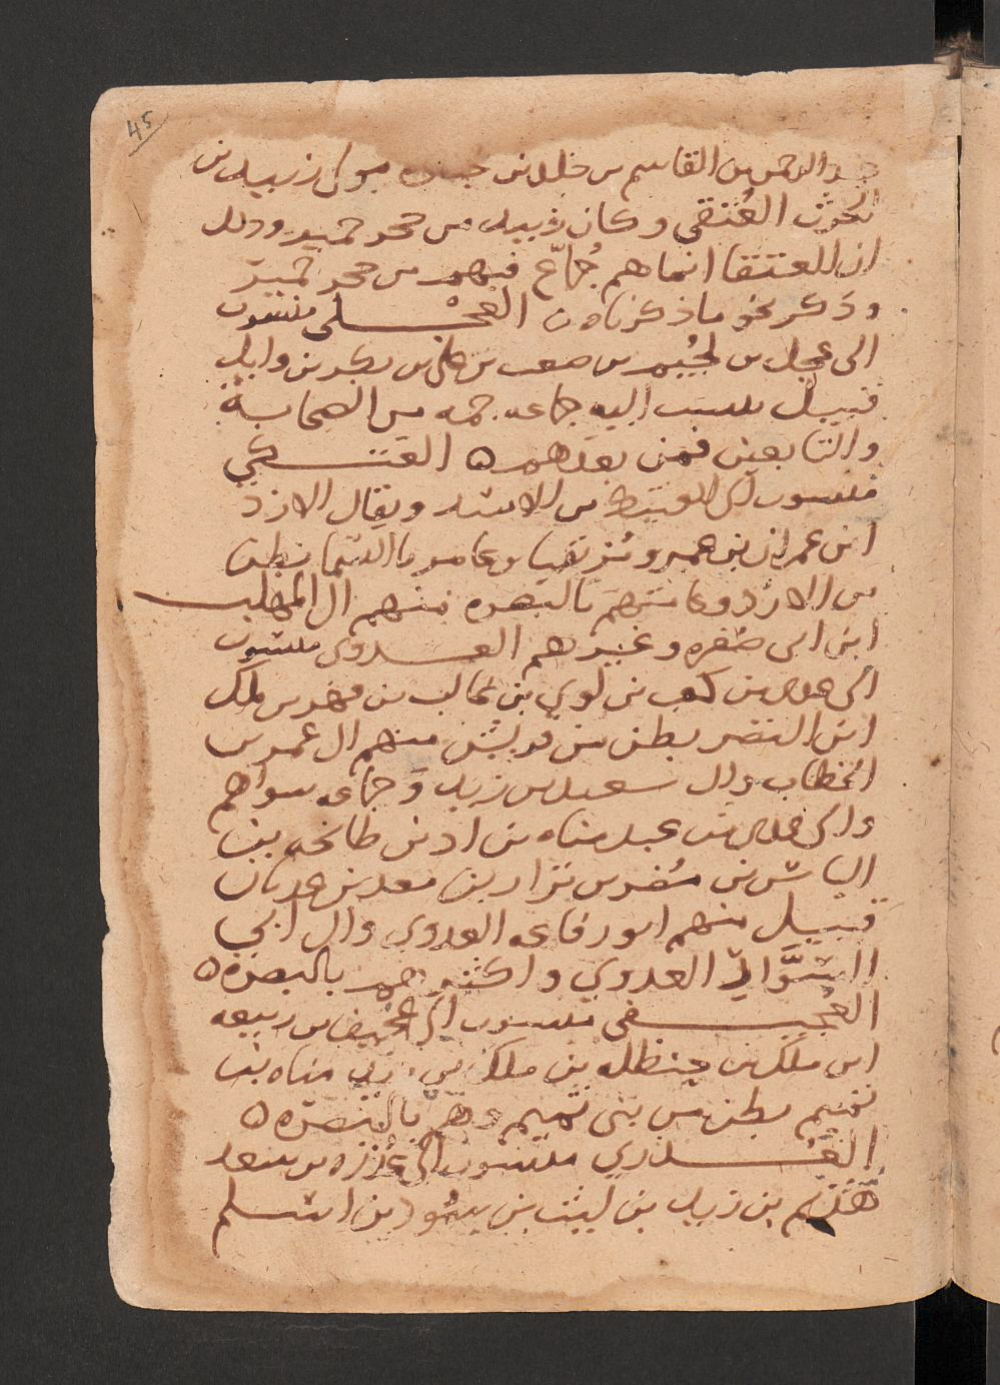 45
عبد الرحمن بن القاسم بن خلد بن جناده مولى زبيد بن
الحرث العُتَقي وكان زبيد من حجر حمير وقيل
ان العتقا انما هم جُمّاع فيهم من حجر حمير
وذكر نحو ما ذكرناه ه العجْلى منسوب
الى عجل بن لُجيم بن صعب بن على بن بكر بن وايل
قبيل ينسب اليه جماعه جمه من الصحابة
والتابعين فمن بعدهم ه العَتَكي
منسوب الى العتيك من الاسد ويقال الازد
ابن عمران بن عمرو مُزيقيا بن عامر ما السما بطن
من الازد وعامتهم بالبصره منهم ال المهلب
ابن ابى صفره وغيرهم العدوى منسوب
الى عدى بن كعب بن لوي بن غالب بن فهر بن ملك
ابن النضر بطن من قريش منهم ال عمر بن
الخطاب وال سعيد بن زيد وجماعه سواهم
والى عدى بن عبد مناه بن اد بن طابخه بن
الياس بن مُضر بن نزار بن معد بن عدنان
قبيل منهم ابو رفاعه العدوي وال ابي
السَّوار العدوي واكثرهم بالبصره ه
العُجيفى منسوب الى عُجيف بن ربيعه
ابن ملك بن حنظله بن ملك بن زيد مناه بن
تميم بطن من بنى تميم وهم بالبصره ه
العُذري منسوب الى عُذره بن سعد
هُذيم بن زيد بن ليث بن سُود بن اسلم